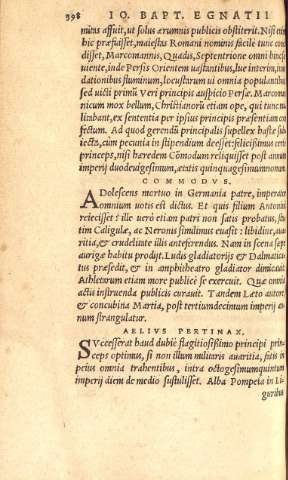 398 IO. BAPT. EGNATII
minus affuit, ut solus ærumnis publicis obstiterit. Nisi enim
hic præfuisset, maiestas Romani nominis facile tunc conci
disset, Marcomannis, Quadis, Septentrione omni hinc se
uiente, inde Persis Orientem uastantibus, lue interim, inun
dationibus fluminum, locustarum ui omnia populantibus,
sed uicti primũ Veri principis auspicio Persæ. Marcoman
nicum mox bellum, Christianorũ etiam ope, qui tunc mi
litabant, ex sententia per ipsius principis præsentiam con
fectum. Ad quod gerendũ principalis supellex hastæ sub
iecta, cùm pecunia in stipendium deesset: felicissimus certè
princeps, nisi hæredem Cõmodum reliquisset post annum
imperij duodeuigesimum, ætatis quinquagesimumnonum.
COMMODVS.
ADolescens mortuo in Germania patre, imperator
omnium uotis est dictus. Et quis filium Antonini
reiecisset? ille uerò etiam patri non satis probatus, sta
tim Caligulæ, ac Neronis similimus euasit: libidine, aua
ritia, & crudelitate illis anteferendus. Nam in scena sæpe
aurigæ habitu prodijt. Ludis gladiatorijs & Dalmatica
tus præsedit, & in amphitheatro gladiator dimicauit.
Athletarum etiam more publicè se exercuit. Quæ omnia
actis instruenda publicis curauit. Tandem Læto autore
& concubina Martia, post tertiumdecimum imperij an
num strangulatur.
AELIVS PERTINAX.
SVccesserat haud dubiè flagitiosissimo principi prin
ceps optimus, si non illum militaris auaritia, fatis in
peius omnia trahentibus, intra octogesimumquintum
imperij diem de medio sustulisset. Alba Pompeia in Li-
guribus